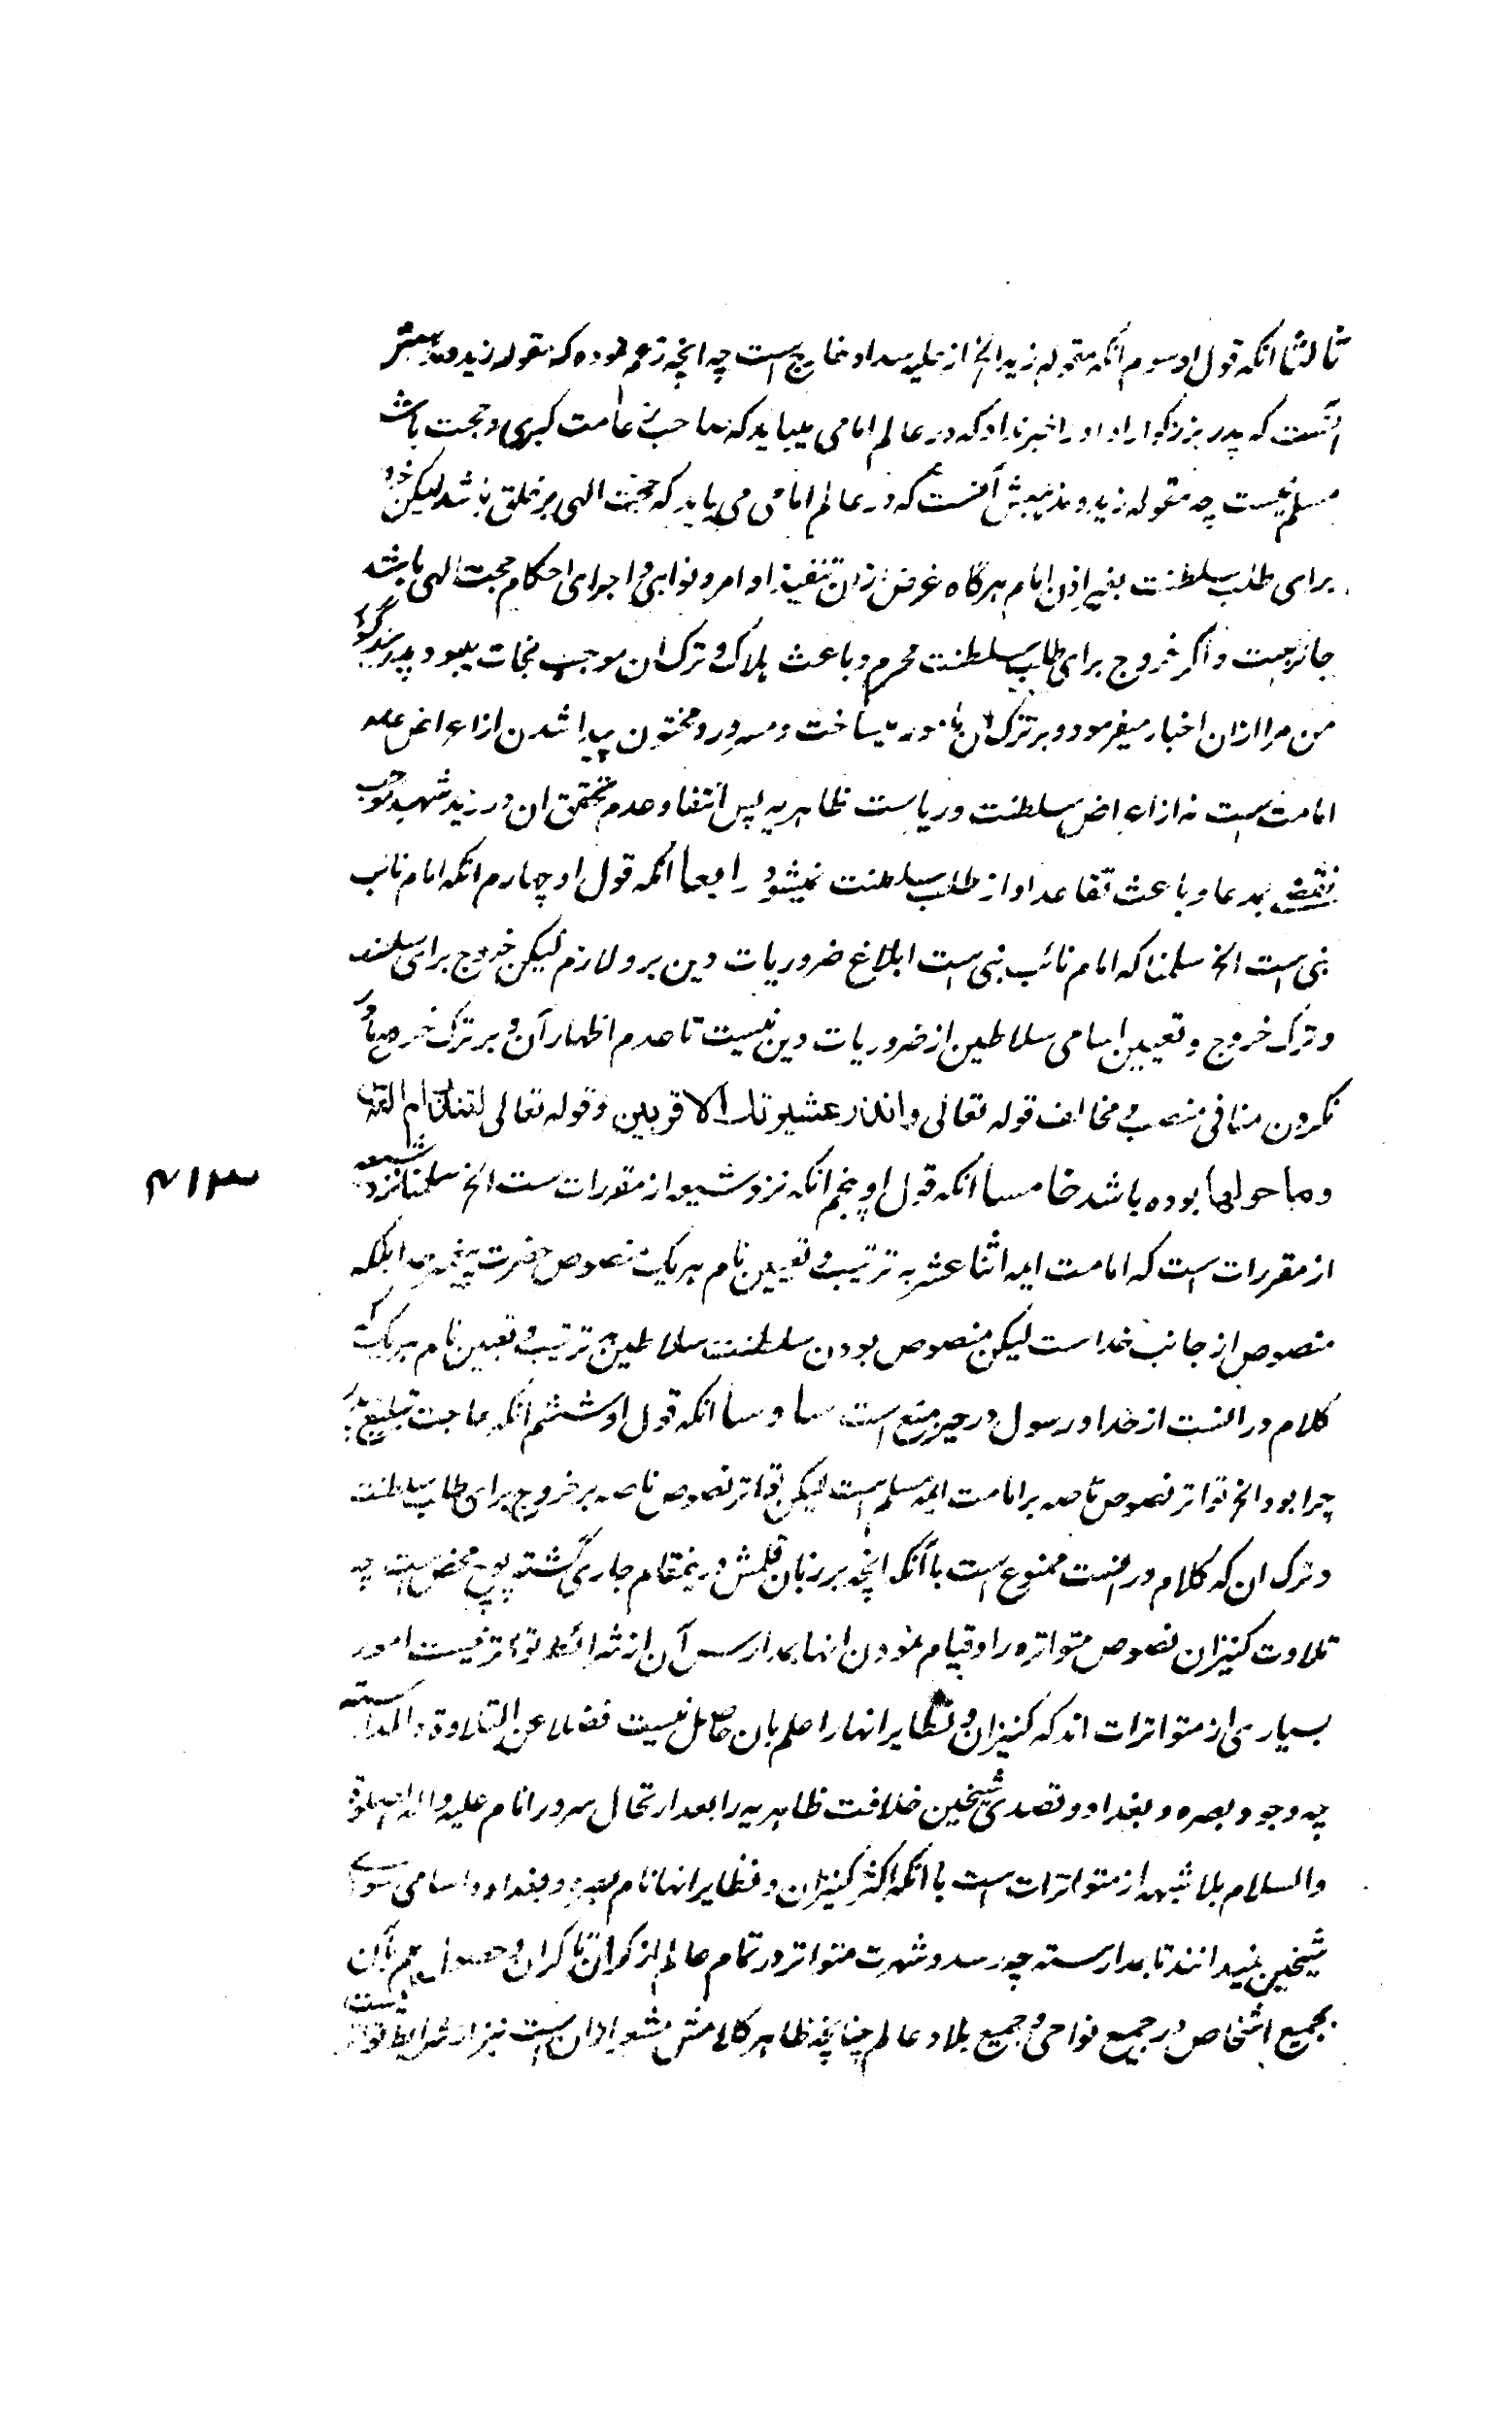 ثالثا انکه قول او سوم انکه مقوله زید الخ از حلیه سداد خارج است چه انچه زعم نموده که مقوله زید و مذهبش
انست که پدر بزرگوار او او را خبر نداد که در عالم امامی میباید که صاحب زعامت کبری و حجت باشد
مسلم نیست چه مقوله زید و مذهبش آنست که در عالم امامی می باید که حجت الهی بر خلق باشد لیکن خروج
برای طلب سلطنت بغیر اذن امام هرگاه غرض ازان تنفیذ اوامر و نواهی و اجرای احکام حجت الهی باشد
جائز هست و اگر خروج برای طلب سلطنت محرم و باعث هلاک و ترک ان موجب نجات میبود پدر بزرگوار
من مرا ازان اخبار میفرمود و بر ترک ان مامور میساخت و مسرور و مختون پیدا شدن از اعراض
امامت ست نه از اعراض سلطنت و ریاست ظاهریه پس انتفا و عدم تحقق ان در زید شهید موجب
نقض مدعا و باعث تقاعد او از طلب سلطنت نمیشود رابعا انکه قول او چهارم انکه امام نائب
نبی است الخ سلمنا که امام نائب نبی است ابلاغ ضروریات دین برو لازم لیکن خروج برای سلطنت
و ترک خروج و تعیین اسامی سلاطین از ضروریات دین نیست تا عدم اظهار آن و بر ترک خروج مامور
نکردن منافی منصب و مخالف قوله تعالی وانذر عشیرتک الاقربین و قوله تعالی لتنذر ام القری
وما حولها بوده باشد خامسا انکه قول او پنجم انکه نزد شیعه از مقررات ست الخ سلمنا نزد شیعه
از مقررات است که امامت ایمه اثنا عشر به ترتیب و تعیین نام هریک منصوص حضرت پیغمبر بلکه
منصوص از جانب خداست لیکن منصوص بودن سلطنت سلاطین به ترتیب و تعیین نام هریک که
کلام در انست از خدا و رسول در حیز منع است سادسا انکه قول او ششم انکه حاجت تبلیغ
چرا بود الخ تواتر نصوص ناصه بر امامت ایمه مسلم است لیکن تواتر نصوص ناصه بر خروج برای طلب سلطنت
و ترک ان که کلام در انست ممنوع است با آنکه انچه بر زبان قلمش درینمقام جاری گشته پوچ محض است چه
تلاوت کنیزان نصوص متواتره را و قیام نمودن انها بمدارست آن از شرائط تواتر نیست امور
بسیاری از متواترات اند که کنیزان و نظایر انها را علم بان حاصل نیست فضلا عن التلاوة والمدارسته
چه وجود بصره و بغداد و تصدی شیخین خلافت ظاهریه را بعد ارتحال سرور انام علیه واله الصلوة
والسلام بلا شبهه از متواترات است با انکه اکثر کنیزان و نظایر انها نام بصره و بغداد و اسامی سوی
شیخین نمیدانند تا بمدارسته چه رسد و شهرت متواتر در تمام عالم از کران تا کران و حصول علم بان
بجمیع اشخاص در جمیع نواحی و جمیع بلاد عالم چنانچه ظاهر کلامش مشعر بران است نیز از شرایط تواتر نیست
۴۱۳